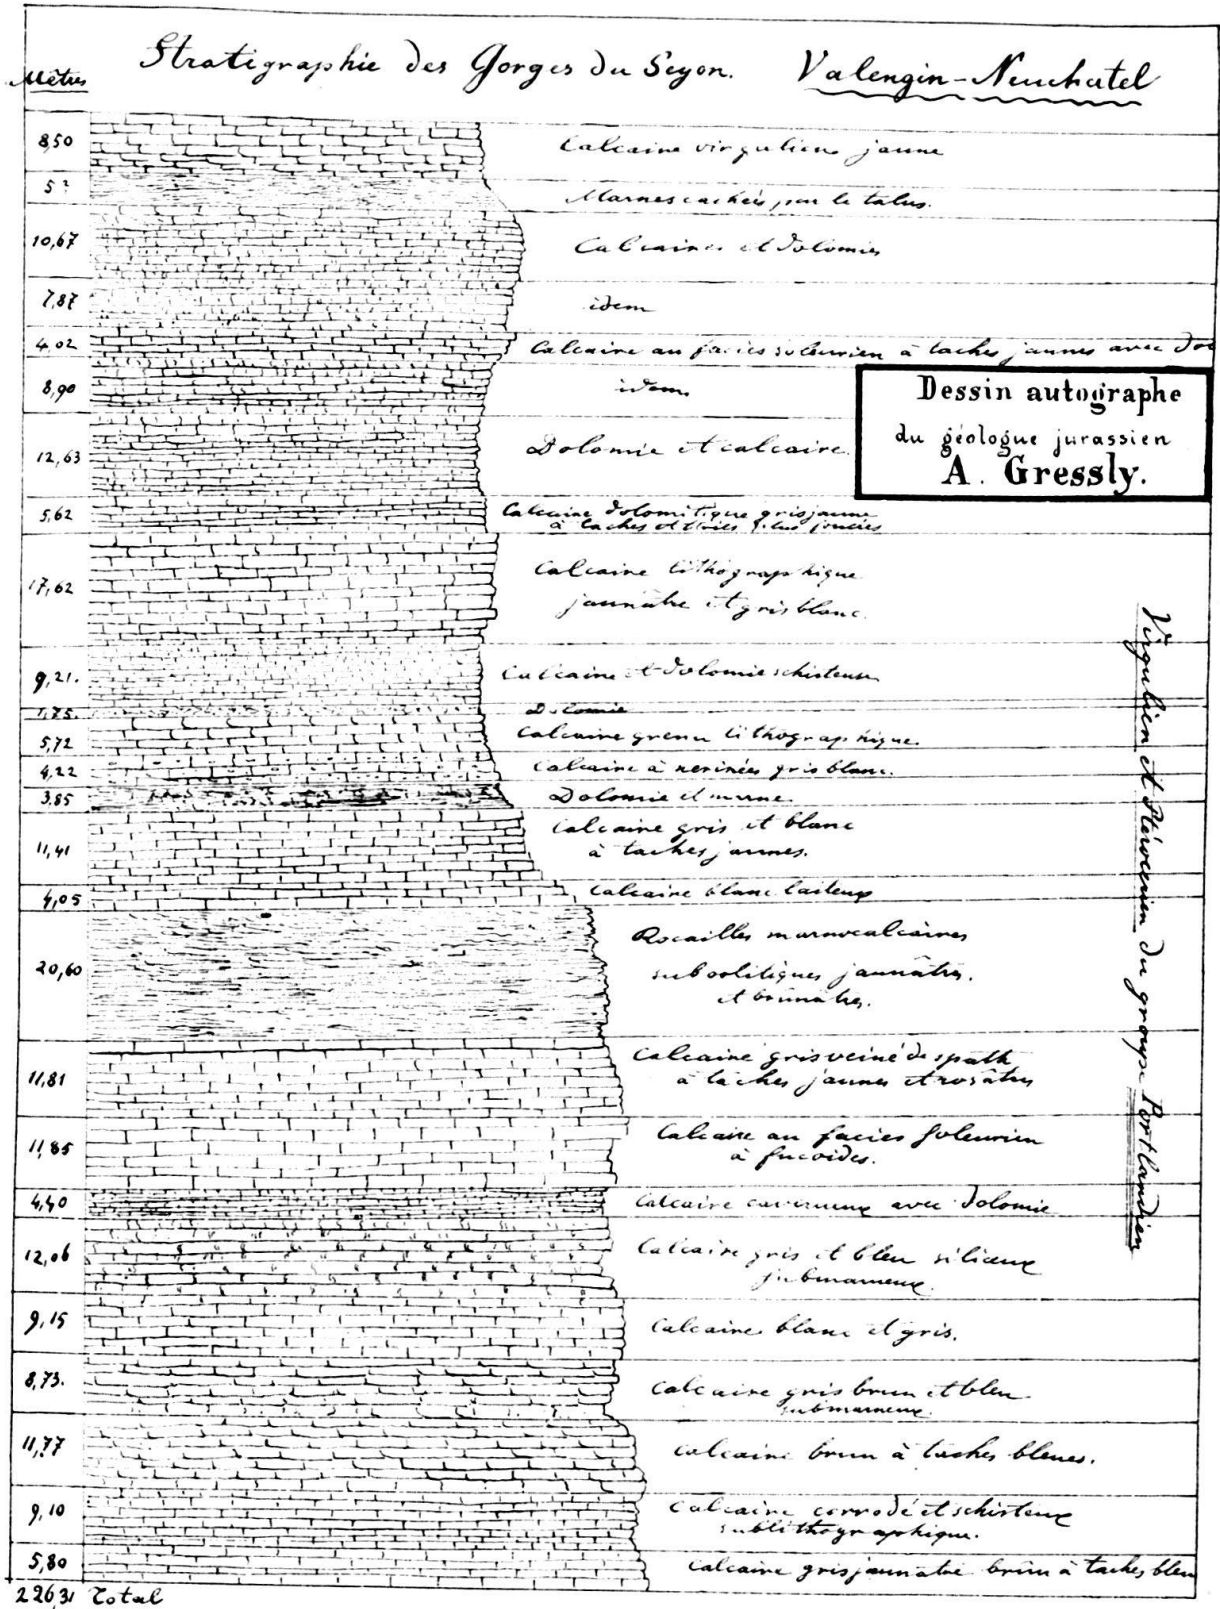 Stratigraphie des Gorges du Seyon. Valengin-Neuchatel
Mètres
8,50 Calcaire virgulien jaune
5? Marnes cachées par le talus.
10,67 Calcaires et dolomies
7,87 idem
4,02 Calcaire au facies soleurien à taches jaunes avec dol
8,90 idem
Dessin autographe
du géologue jurassien
A. Gressly.
12,63 Dolomie et calcaire.
5,62 Calcaire dolomitique gris jaune
à taches et stries plus foncées
17,62 Calcaire lithographique
jaunâtre et gris blanc.
9,21. Calcaire et dolomie schisteuse
1,75. Dolomie
5,72 Calcaire grenu lithographique.
4,22 Calcaire à nerinées gris blanc.
3,85 Dolomie et marne.
11,41 Calcaire gris et blanc
à taches jaunes.
4,05 Calcaire blanc laiteux
20,60 Rocailles marnocalcaires
suboolitiques jaunâtres.
et brunâtres.
11,81 Calcaire gris veiné de spath
à taches jaunes et rosâtres
11,85 Calcaire au facies soleurien
à fucoides.
4,40 Calcaire caverneux avec dolomie
12,06 Calcaire gris et bleu siliceux
submarneux.
9,15 Calcaire blanc et gris.
8,73. Calcaire gris brun et bleu
submarneux.
11,77 Calcaire brun à taches bleues.
9,10 Calcaire corrodé et schisteux
sublithographique.
5,80 Calcaire gris jaunâtre brun à taches bleu
226,31 Total
Virgulien et Ptérocerien du groupe Portlandien